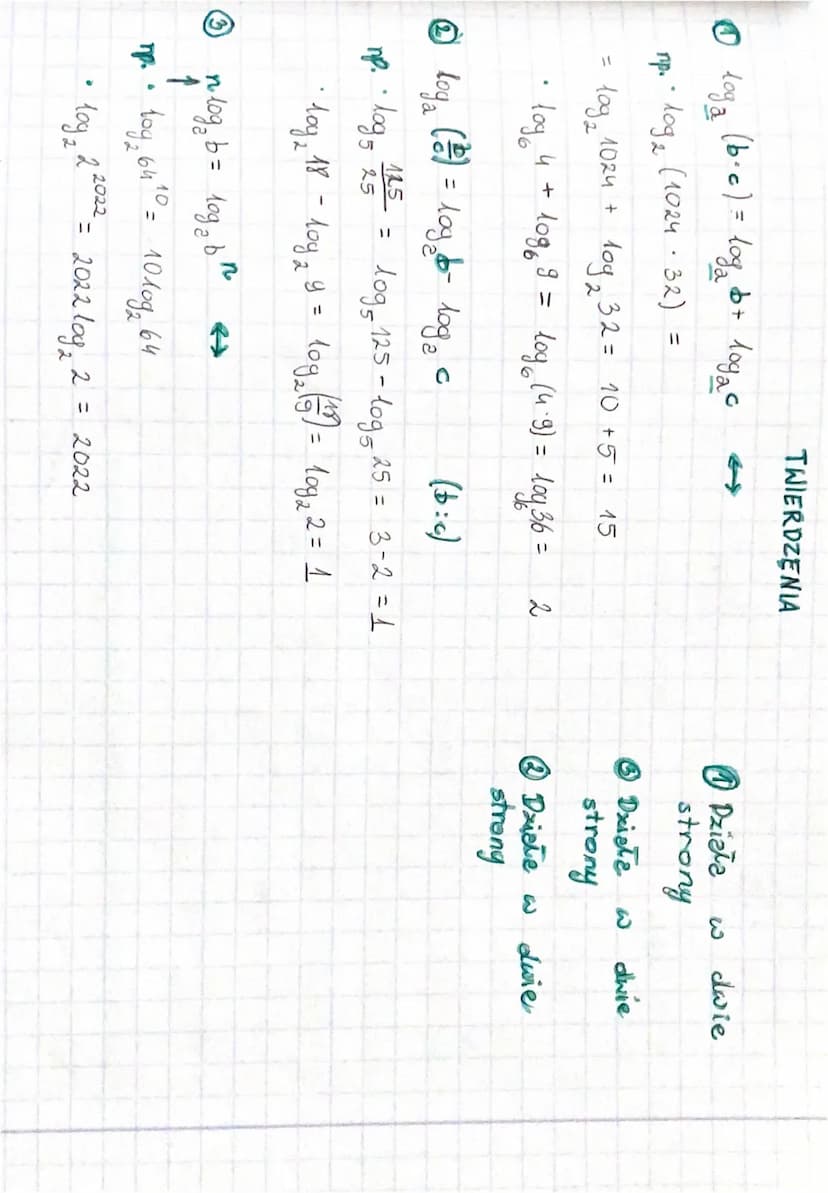 TWIERDZENIA
① logₐ (b·c) = logₐ b + logₐ c ↔
np. · log₂ (1024 · 32) =
= log₂ 1024 + log₂ 32 = 10 + 5 = 15
· log₆ 4 + log₆ 9 = log₆ (4·9) = log₆ 36 = 2
② logₐ (b/c) = logₐ b - logₐ c (b:c)
np. · log₅ 125/25 = log₅ 125 - log₅ 25 = 3 - 2 = 1
· log₂ 18 - log₂ 9 = log₂ (18/9) = log₂ 2 = 1
③ n logₐ b = logₐ bⁿ ↔
↑
np. · log₂ 64¹⁰ = 10 log₂ 64
· log₂ 2²⁰²² = 2022 log₂ 2 = 2022
① Działa w dwie
strony
③ Działa w dwie
strony
② Działa w dwie
strony